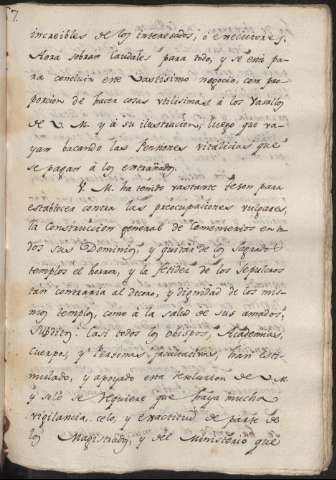 7.
increibles de los interesados, ó exclusivas.
Ahora sobran caudales para todo, y se está pa-
ra concluir este vastisimo negocio, con pro-
porcion de hacer cosas utilisimas á los Vasallos
de V. M. y á su ilustracion, luego que va-
yan bacando las Pensiones vitalicias que
se pagan á los extrañados.
V. M. ha tenido bastante teson para
establecer contra las preocupaciones vulgares,
la Construccion general de Cementerios en to-
dos sus Dominios, y quitar de los sagrados
templos el horror, y la fetidez de los Sepulcros
tan contraria al decoro, y dignidad de los mis-
mos templos, como á la salud de sus amados
Subditos. Casi todos los obispos, Academias,
Cuerpos, y Personas facultativas, han esti-
mulado, y apoyado esta resolucion de V. M.
y solo se requiere que haya mucha
vigilancia, celo, y exactitud de parte de
los Magistrados, y del Ministerio que